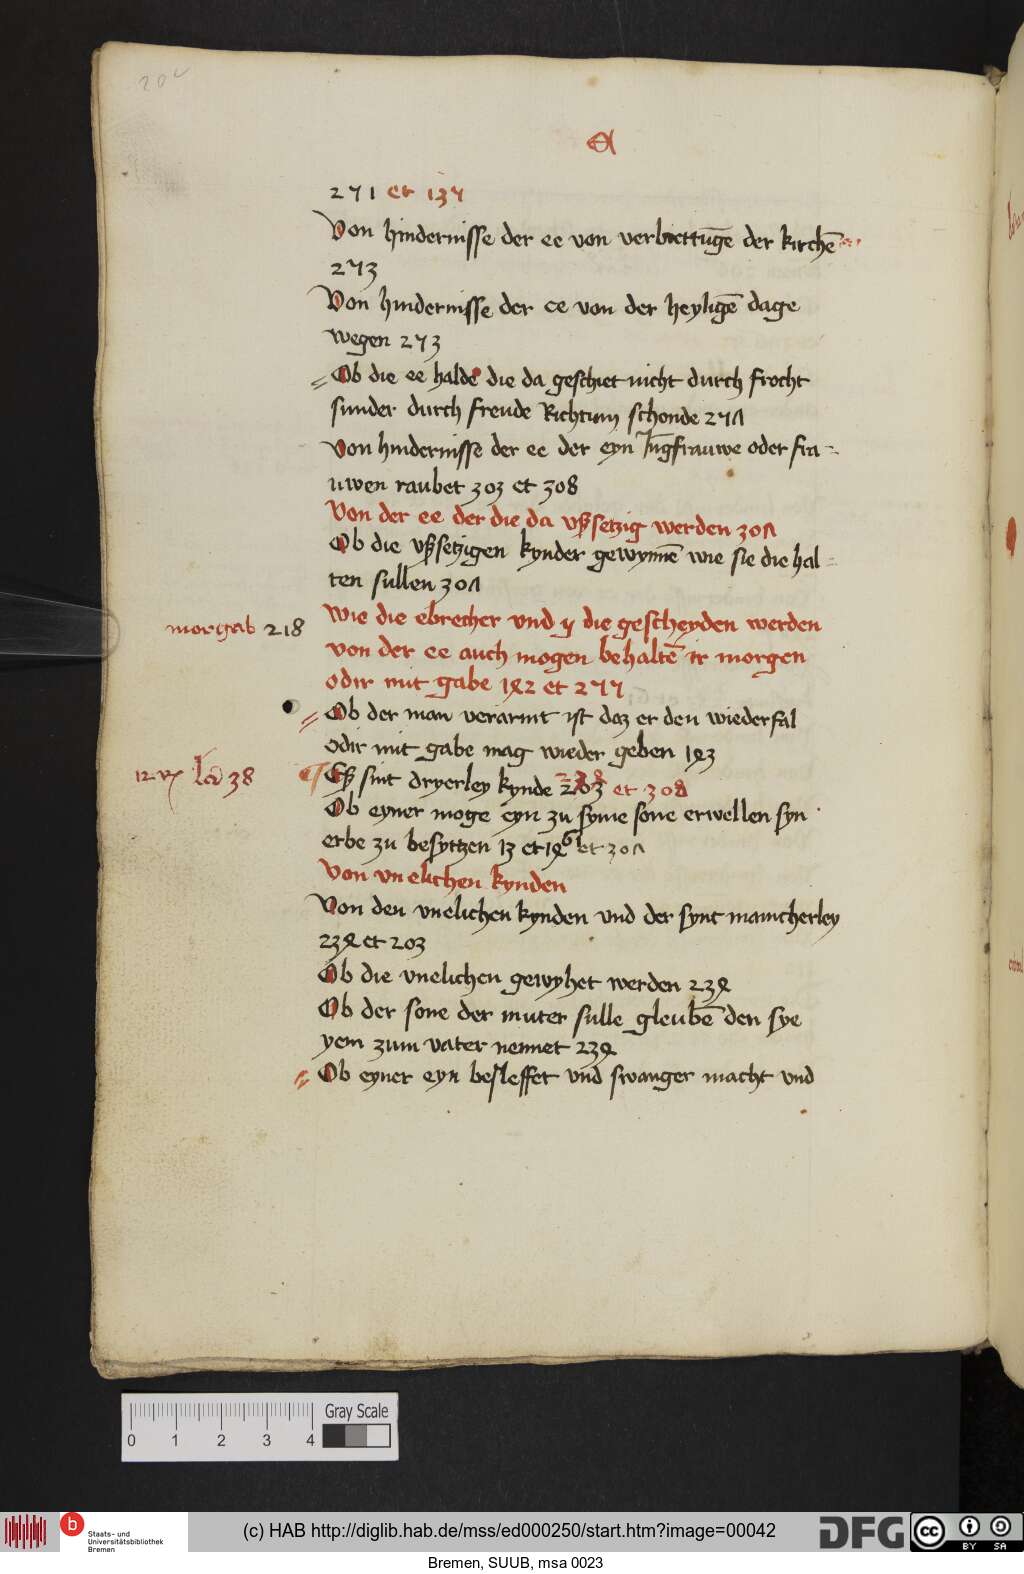 20v
A
271 et 137
Von hindernisse der ee von verbiettu̅ge der kirche̅
273
Von hindernisse der ee von der heylige̅ dage
wegen 273
Ob die ee halde die da geschiet nicht durch frocht
sunder durch freude Richtum schonde 27Λ
Von hindernisse der ee der eyn Ju̅gfrauwe oder fra-
uwen raubet 303 et 308
Von der ee der die da vßsetzig werden 30Λ
Ob die vßsetzigen kynder gewynne̅ wie sie die hal-
ten sullen 30Λ
morgab 218
Wie die ebrecher vnd ÿ die gescheyden werden
von der ee auch mogen behalte̅ ir morgen
odir mit gabe 1ꝝ2 et 277
Ob der man verarmt ist daz er den wiederfal
odir mit gabe mag wieder geben 1ꝝ3
Eß sint dryerley kynde 203 et 308
38
Ob eyner moge eyn zu syme sone erwellen syn
erbe zu besyttzen 13 et 1ꝝ6 et 30Λ
Von vnelichen kynden
Von den vnelichen kynden vnd der synt mancherley
23ꝝ et 203
Ob die vnelichen gewyhet werden 23ꝝ
Ob der sone der muter sulle gleube̅ den sye
yem zum vater nennet 23ꝝ
Ob eyner eyn besleffet vnd swanger macht vnd
0 1 2 3 4 Gray Scale
b Staats- und
Universitätsbibliothek
Bremen
(c) HAB http://diglib.hab.de/mss/ed000250/start.htm?image=00042
DFG
cc BY SA
Bremen, SUUB, msa 0023